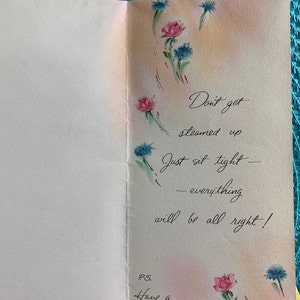 Don't get
steamed up
Just sit tight —
— everything
will be all right!
P.S.
Have a